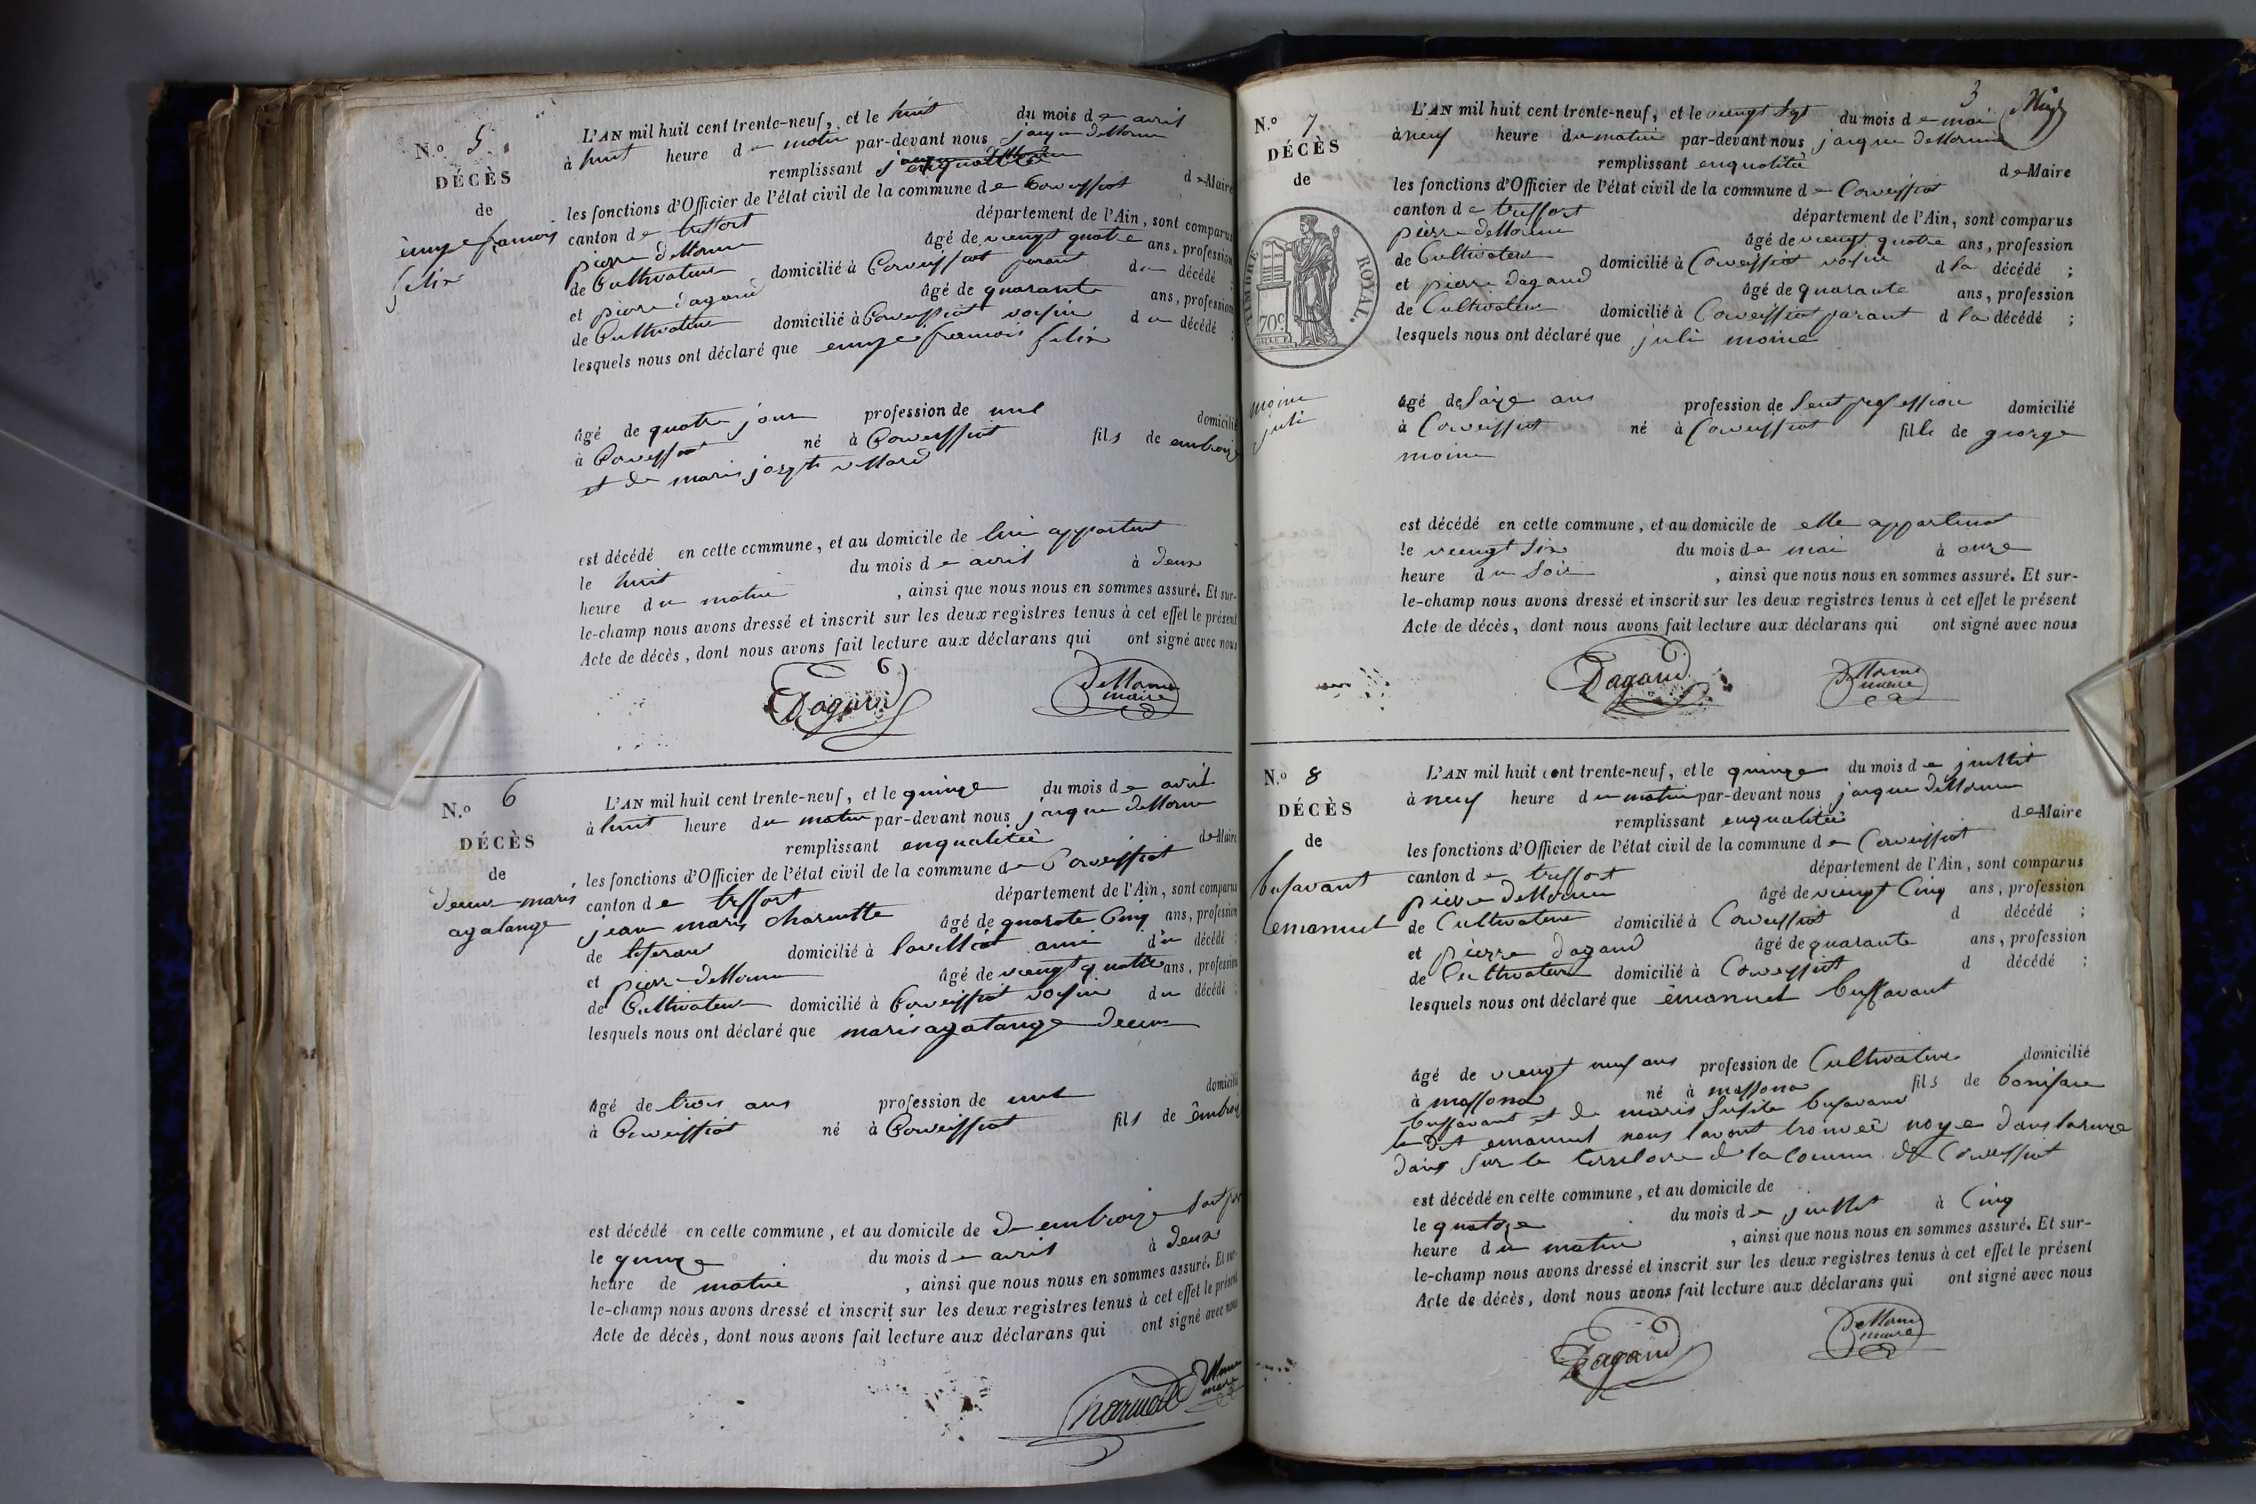 N.º 5
DÉCÈS
de
françois
felix
L'AN mil huit cent trente-neuf, et le huit du mois de avril
à huit heure du matin par-devant nous jaque deMorne
remplissant enqualitée de Maire
les fonctions d'Officier de l'état civil de la commune de Corveissiat
canton de treffort département de l'Ain, sont comparus
pierre deMorne âgé de viengt quatre ans, profession
de Cultivateur domicilié à Corveissiat parant du décédé ;
et pierre dagand âgé de quarante ans, profession
de Cultivateur domicilié à Corveissiat voisin du décédé ;
lesquels nous ont déclaré que françois felix
âgé de quatre jour profession de nul domicilié
à Corveissiat né à Corveissiat fils de embroize
et de marie josepte villard
est décédé en cette commune, et au domicile de lui appartent
le huit du mois de avril à deux
heure du matin , ainsi que nous nous en sommes assuré. Et sur-
le-champ nous avons dressé et inscrit sur les deux registres tenus à cet effet le présent
Acte de décès, dont nous avons fait lecture aux déclarans qui ont signé avec nous
Dagand deMorne
maire
N.º 6
DÉCÈS
de
marie
agatange
L'AN mil huit cent trente-neuf, et le quinze du mois de avril
à huit heure du matin par-devant nous jaique deMorne
remplissant enqualitée de Maire
les fonctions d'Officier de l'état civil de la commune de Corveissiat
canton de treffort département de l'Ain, sont comparus
jean marie charnette âgé de quarate Cinq ans, profession
de domicilié à ami du décédé ;
et pierre deMorne âgé de viengt quatre ans, profession
de Cultivateur domicilié à Corveissiat voisin du décédé ;
lesquels nous ont déclaré que marie agatange
âgé de trois ans profession de nul domicilié
à Corveissiat né à Corveissiat fils de embroize
est décédé en cette commune, et au domicile de de embroize
le quinze du mois de avril à deux
heure de matin , ainsi que nous nous en sommes assuré. Et sur-
le-champ nous avons dressé et inscrit sur les deux registres tenus à cet effet le présent
Acte de décès, dont nous avons fait lecture aux déclarans qui ont signé avec nous
3
N.º 7
DÉCÈS
de
TIMBRE ROYAL.
70c
moine
juli
L'AN mil huit cent trente-neuf, et le viengt sept du mois de mai
à neuf heure du matin par-devant nous jaique deMorne
remplissant enqualitée de Maire
les fonctions d'Officier de l'état civil de la commune de Corveissiat
canton de treffort département de l'Ain, sont comparus
pierre deMorne âgé de viengt quatre ans, profession
de Cultivateur domicilié à Corveissiat voisin d la décédé ;
et pierre dagand âgé de quarante ans, profession
de Cultivateur domicilié à Corveissiat parant d la décédé ;
lesquels nous ont déclaré que juli moine
âgé de saize ans profession de sent profession domicilié
à Corveissiat né à Corveissiat fille de george
moine
est décédé en cette commune, et au domicile de elle appartenat
le vieungt six du mois de mai à onze
heure du soir , ainsi que nous nous en sommes assuré. Et sur-
le-champ nous avons dressé et inscrit sur les deux registres tenus à cet effet le présent
Acte de décès, dont nous avons fait lecture aux déclarans qui ont signé avec nous
Dagand deMorne
maire
N.º 8
DÉCÈS
de
bufavant
emanuel
L'AN mil huit cent trente-neuf, et le quinze du mois de juillet
à neuf heure du matin par-devant nous jaique deMorne
remplissant enqualitée de Maire
les fonctions d'Officier de l'état civil de la commune de Corveissiat
canton de treffort département de l'Ain, sont comparus
pierre deMorne âgé de vieingt Cinq ans, profession
de Cultivateur domicilié à Corveissiat d décédé ;
et pierre dagand âgé de quarante ans, profession
de Cultivateur domicilié à Corveissiat d décédé ;
lesquels nous ont déclaré que emanuel buffavant
âgé de viengt neuf ans profession de Cultivateur domicilié
à massona né à massona fils de boniface
buffavant et de marie bufavand
le dit emanuel nous lavont trouveé noye dans larivre
dains sur le terriloire de la Commune de Corveissiat
est décédé en cette commune, et au domicile de
le quatoze du mois de juillet à Cinq
heure du matin , ainsi que nous nous en sommes assuré. Et sur-
le-champ nous avons dressé et inscrit sur les deux registres tenus à cet effet le présent
Acte de décès, dont nous avons fait lecture aux déclarans qui ont signé avec nous
Dagand deMorne
maire